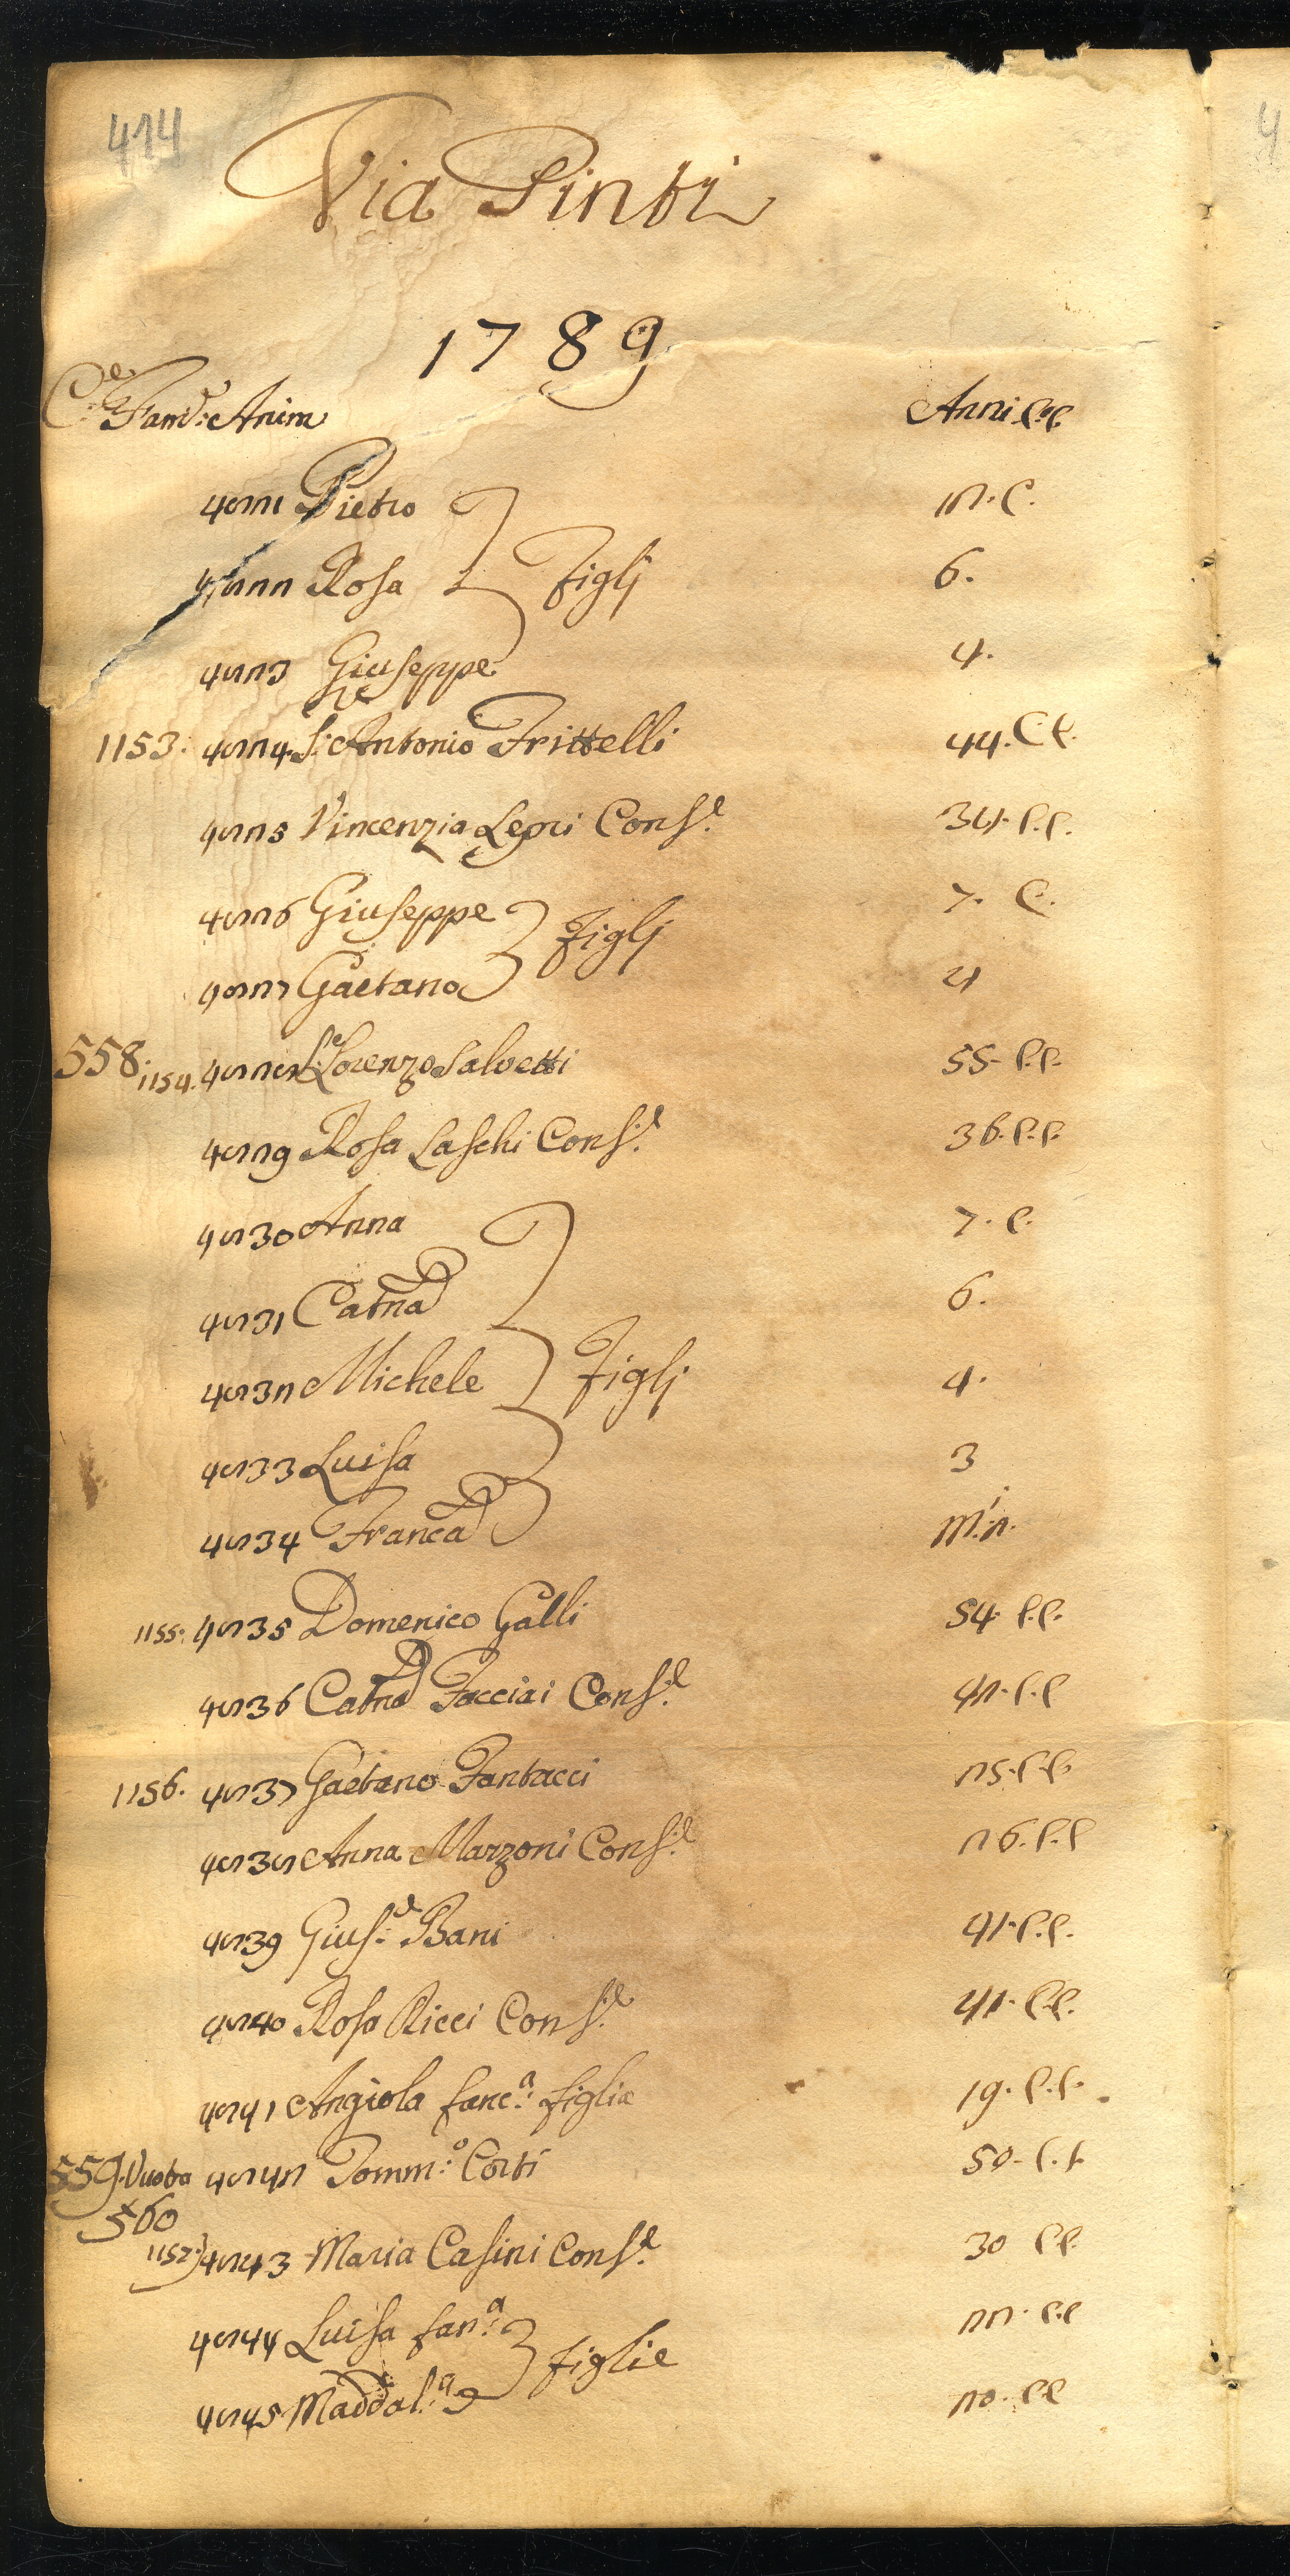 414
Via Pinti
1789
C.e Fam.e Anim Anni C.C.
4821 Pietro 12. C.
4822 Rosa Figlj 6.
4823 Giuseppe 4.
1153. 4824. S.re Antonio Frittelli 44. C.C.
4825 Vincenzia Lepri Cons.e 34. C.C.
4826 Giuseppe 7. C.
Figlj
4827 Gaetano 4
558. 1154. 4828 S.e Lorenzo Salvetti 55. C.C.
4829 Rosa Laschi Cons.e 36. C.C.
4830 Anna 7. C.
4831 Catna 6.
4832 Michele Figlj 4.
4833 Luisa 3
4834 Franca m.i 2.
1155. 4835 Domenico Galli 54. C.C.
4836 Catna Facciai Cons.e 42. C.C
1156. 4837 Gaetano Fantacci 25. C.C.
4838 Anna Marzoni Cons.e 26. C.C
4839 Gius.e Bani 41. C.C.
4840 Rosa Ricci Cons.e 41. C.C.
4841 Angiola fanc.a figlia 19. C.C.
559. Vuota 4842 Tomm.o Corti 50. C.C.
560
1157. 4843 Maria Casini Cons.e 30 C.C.
4844 Luisa fan.a 22. C.C
figlie
4845 Maddal.a 20. C.C